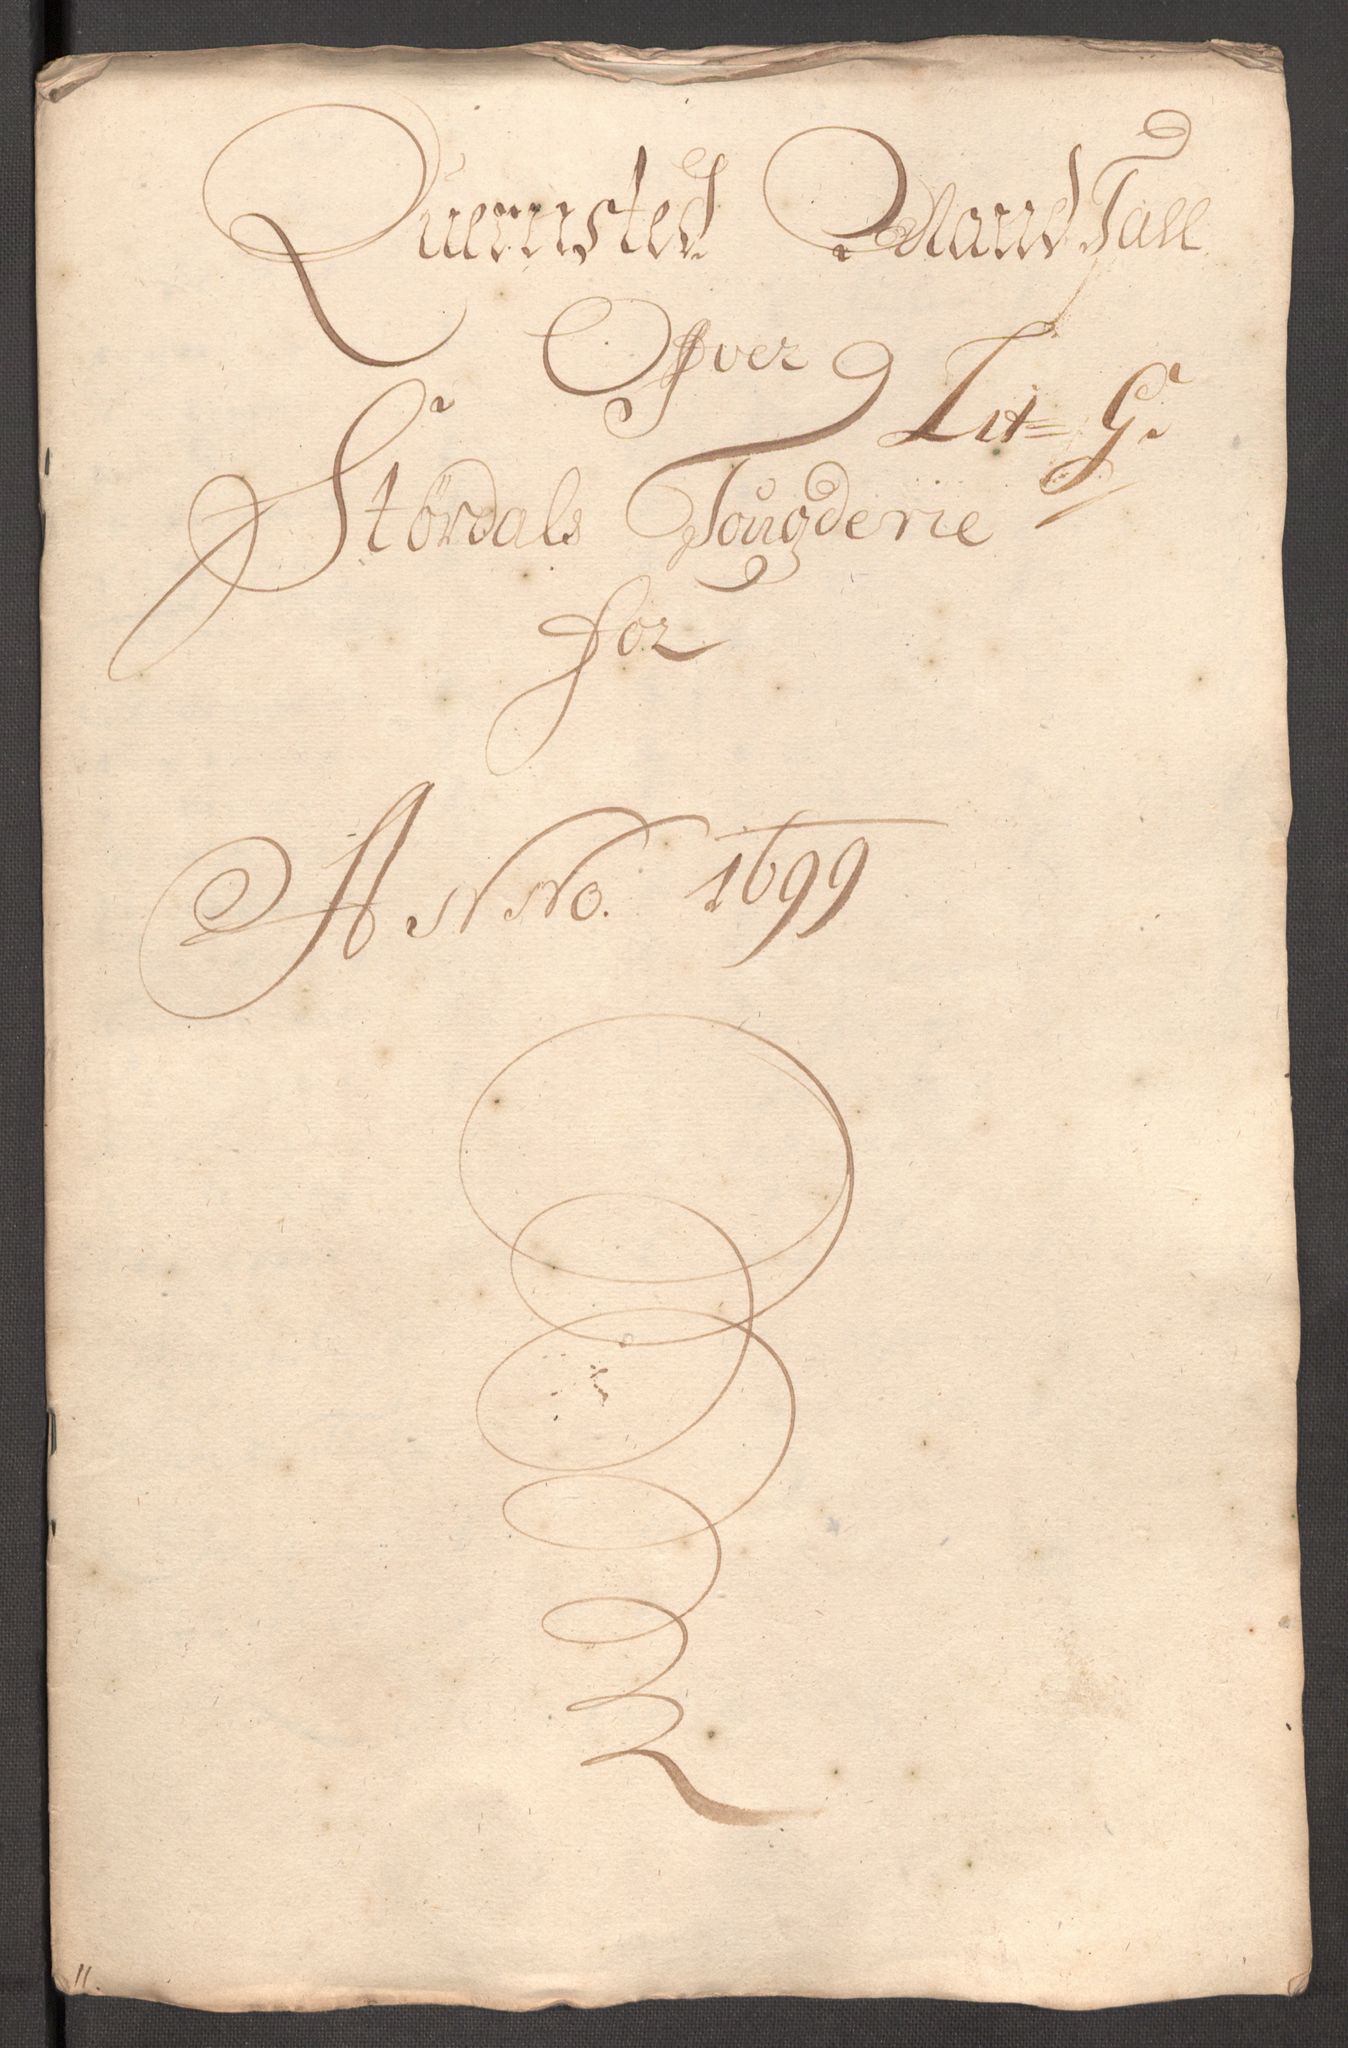 Quernsted Mand Tall
Ofver
Lit= G.
Størdals Fougderie
for
ANNo. 1699
11.